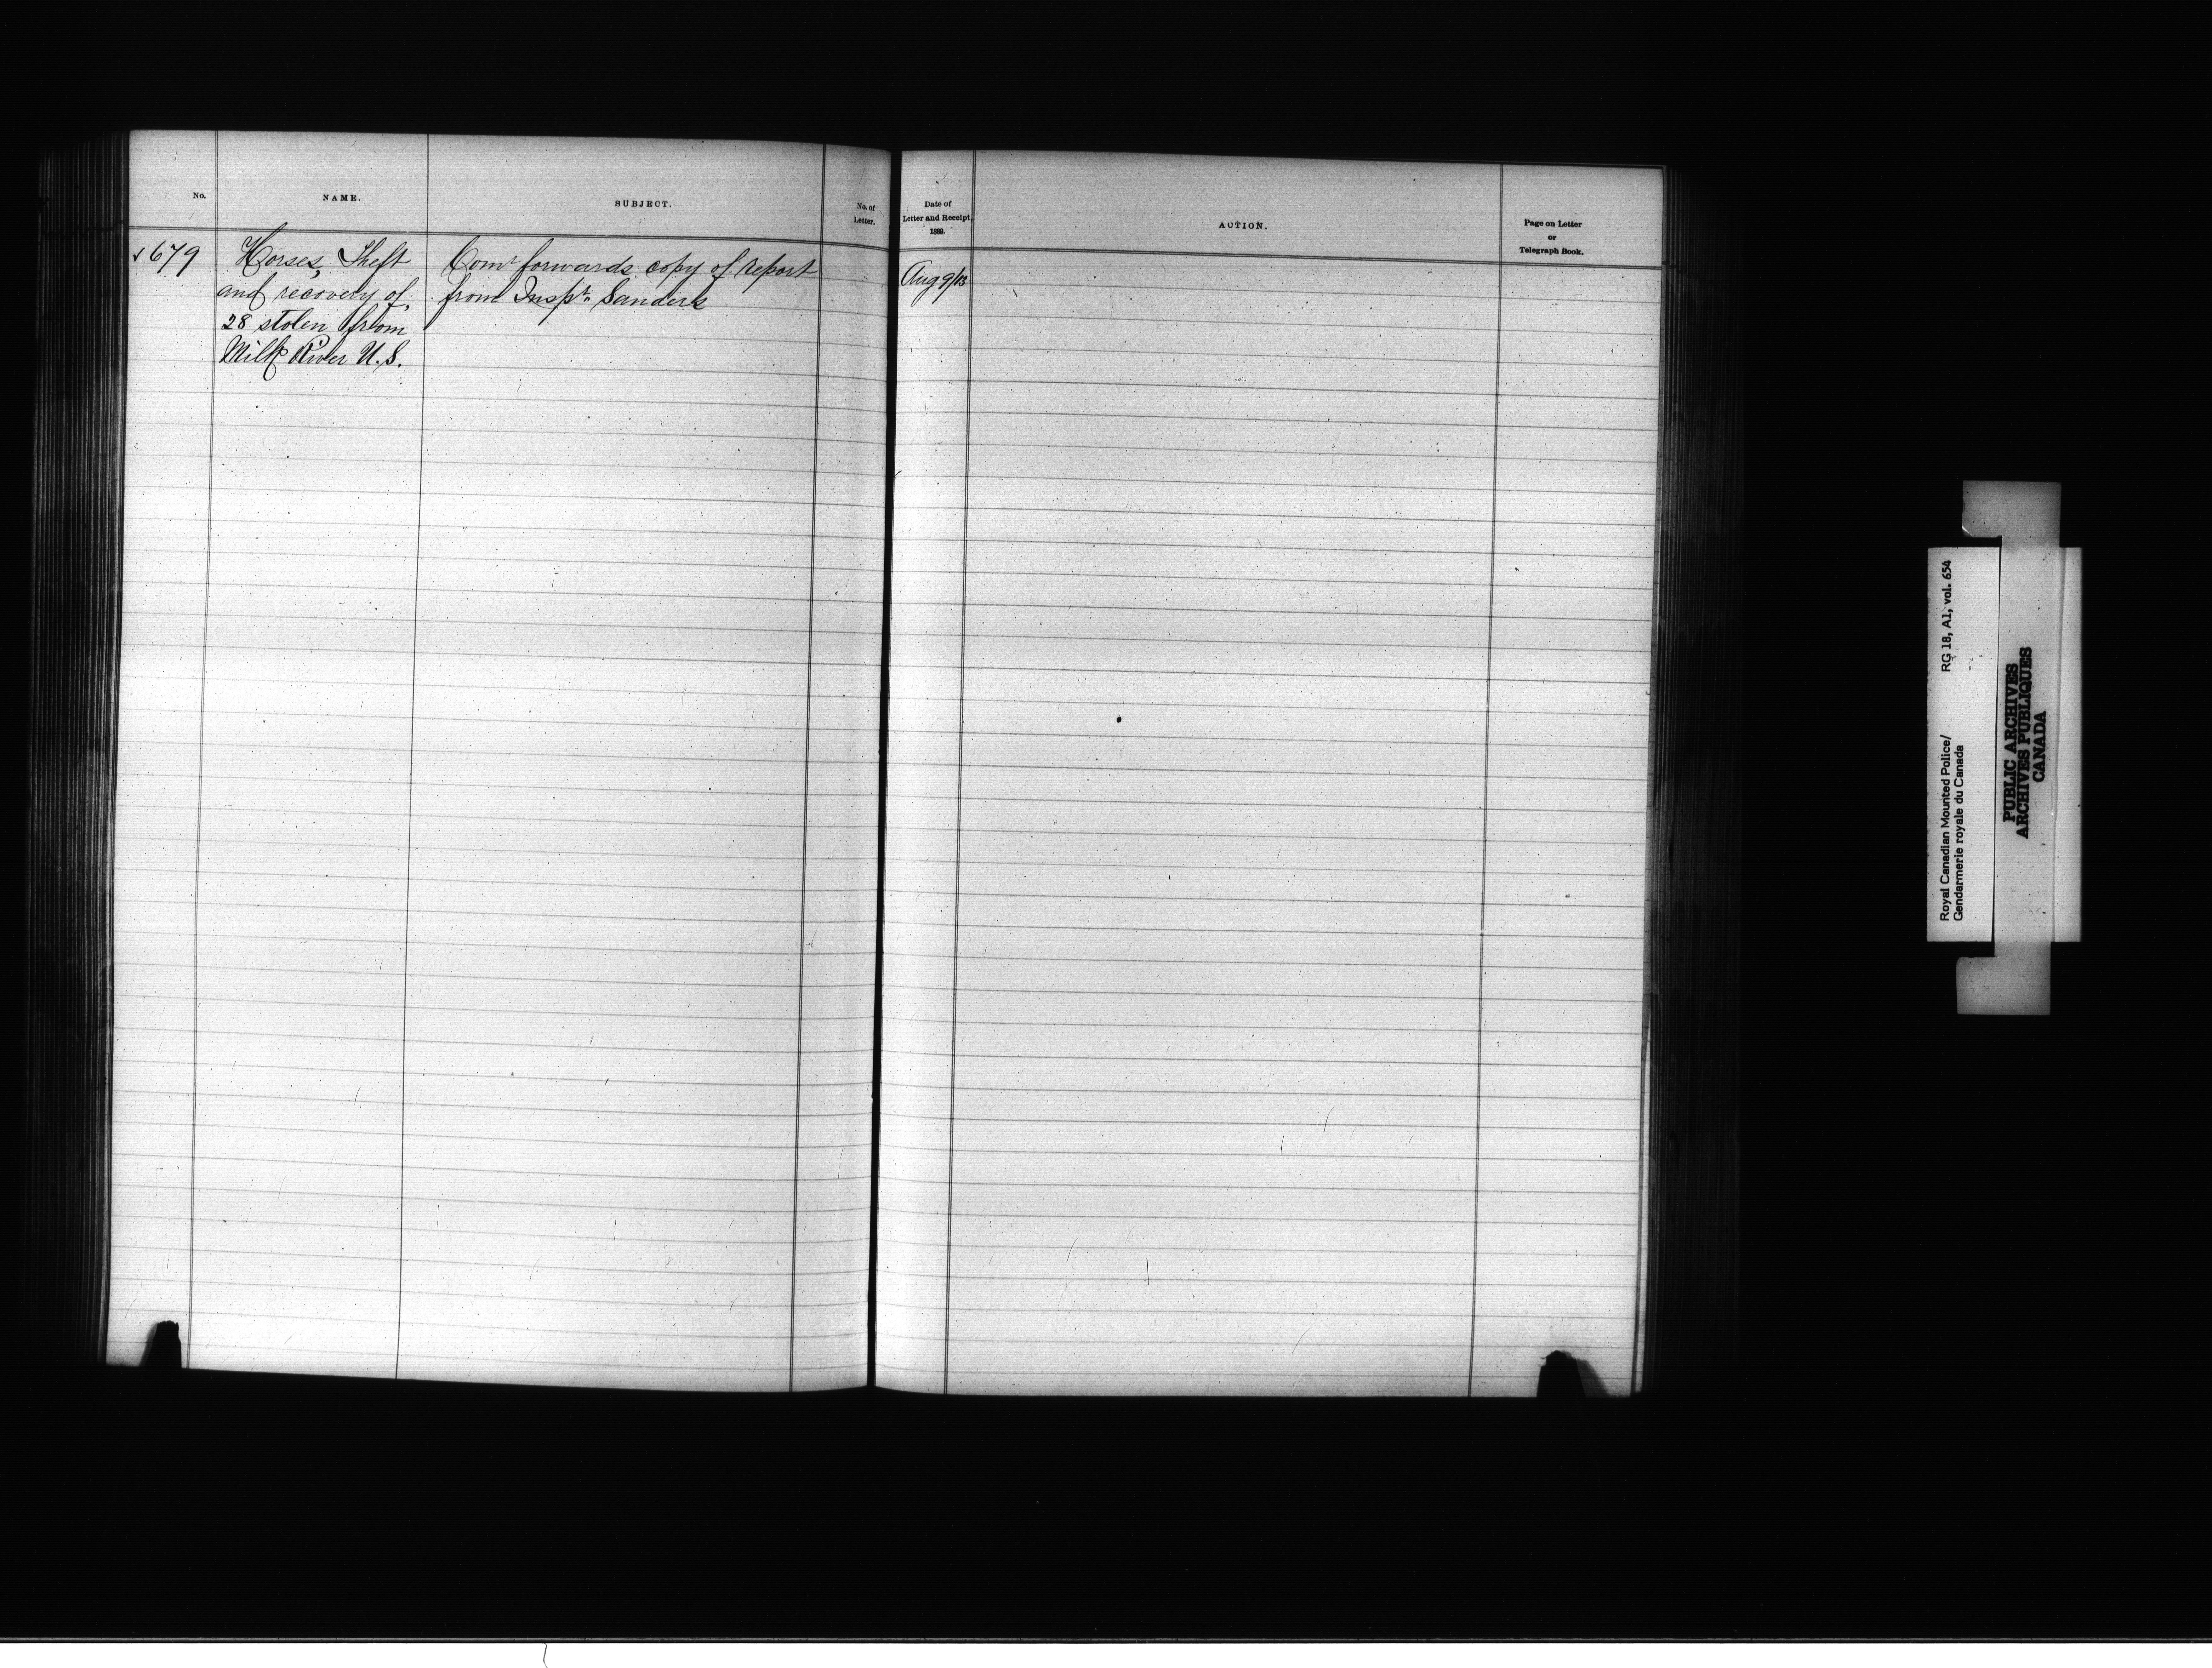 No.
NAME.
SUBJECT.
No. of
Letter.
Date of
Letter and Receipt,
1889.
ACTION.
Page on Letter
or
Telegraph Book.
679
Horses, Theft
and recovery of
28 stolen from
Milk River U.S.
Comr forwards copy of report
from Inspr. Sanders
Aug 9/13
Royal Canadian Mounted Police/ RG 18, A1, vol. 654
Gendarmerie royale du Canada
PUBLIC ARCHIVES
ARCHIVES PUBLIQUES
CANADA